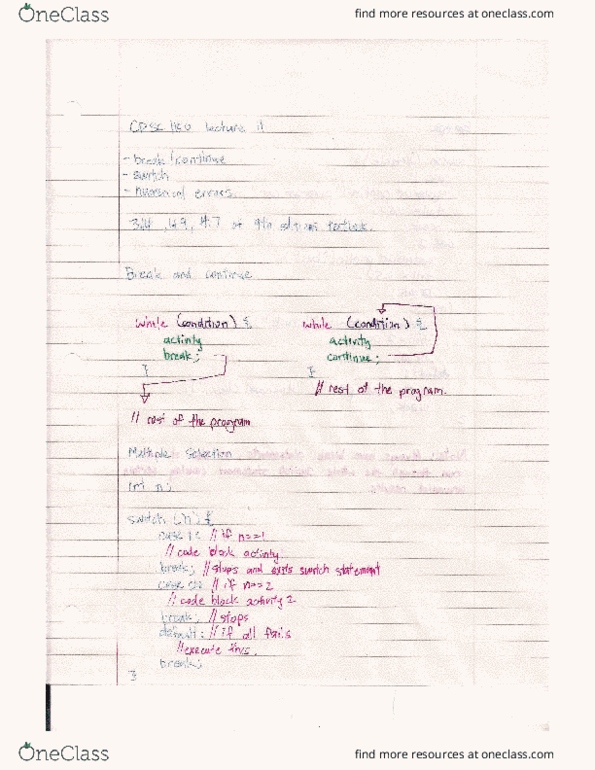 OneClass
find more resources at oneclass.com
CPSC 1150 lecture 11
- break/continue
- switch
- numerical errors
of 9th editions textbook.
Break and continue
while (condition) {
activity
break;
}
// rest of the program
while (condition) {
activity
continue;
}
// rest of the program.
Multiple Selection
int n;
switch (n) {
case 1: // if n==1
// code block activity
break; // stops and exits switch statement
case 2: // if n==2
// code block activity 2
break; // stops
default: // if all fails
// execute this.
break;
}
OneClass
find more resources at oneclass.com